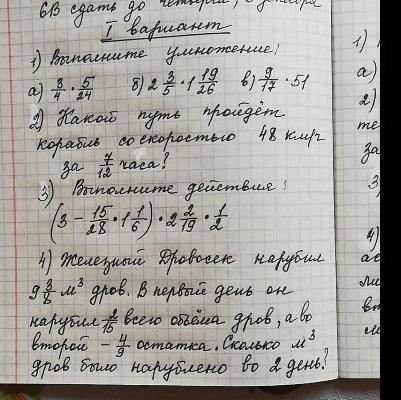 6В сдать до четверга, 2 декабря
I вариант
1) Выполните умножение!
а) 3/4 · 5/24 б) 2 3/5 · 1 19/26 в) 9/17 · 51
2) Какой путь пройдёт
корабль со скоростью 48 км/ч
за 7/12 часа?
3) Выполните действия!
(3 - 15/28 · 1 1/6) · 2 2/19 · 1/2
4) Железный Дровосек нарубил
9 3/8 м³ дров. В первый день он
нарубил 2/15 всего объёма дров, а во
второй - 4/9 остатка. Сколько м³
дров было нарублено во 2 день?
1)
а)
2)
за
3)
4)